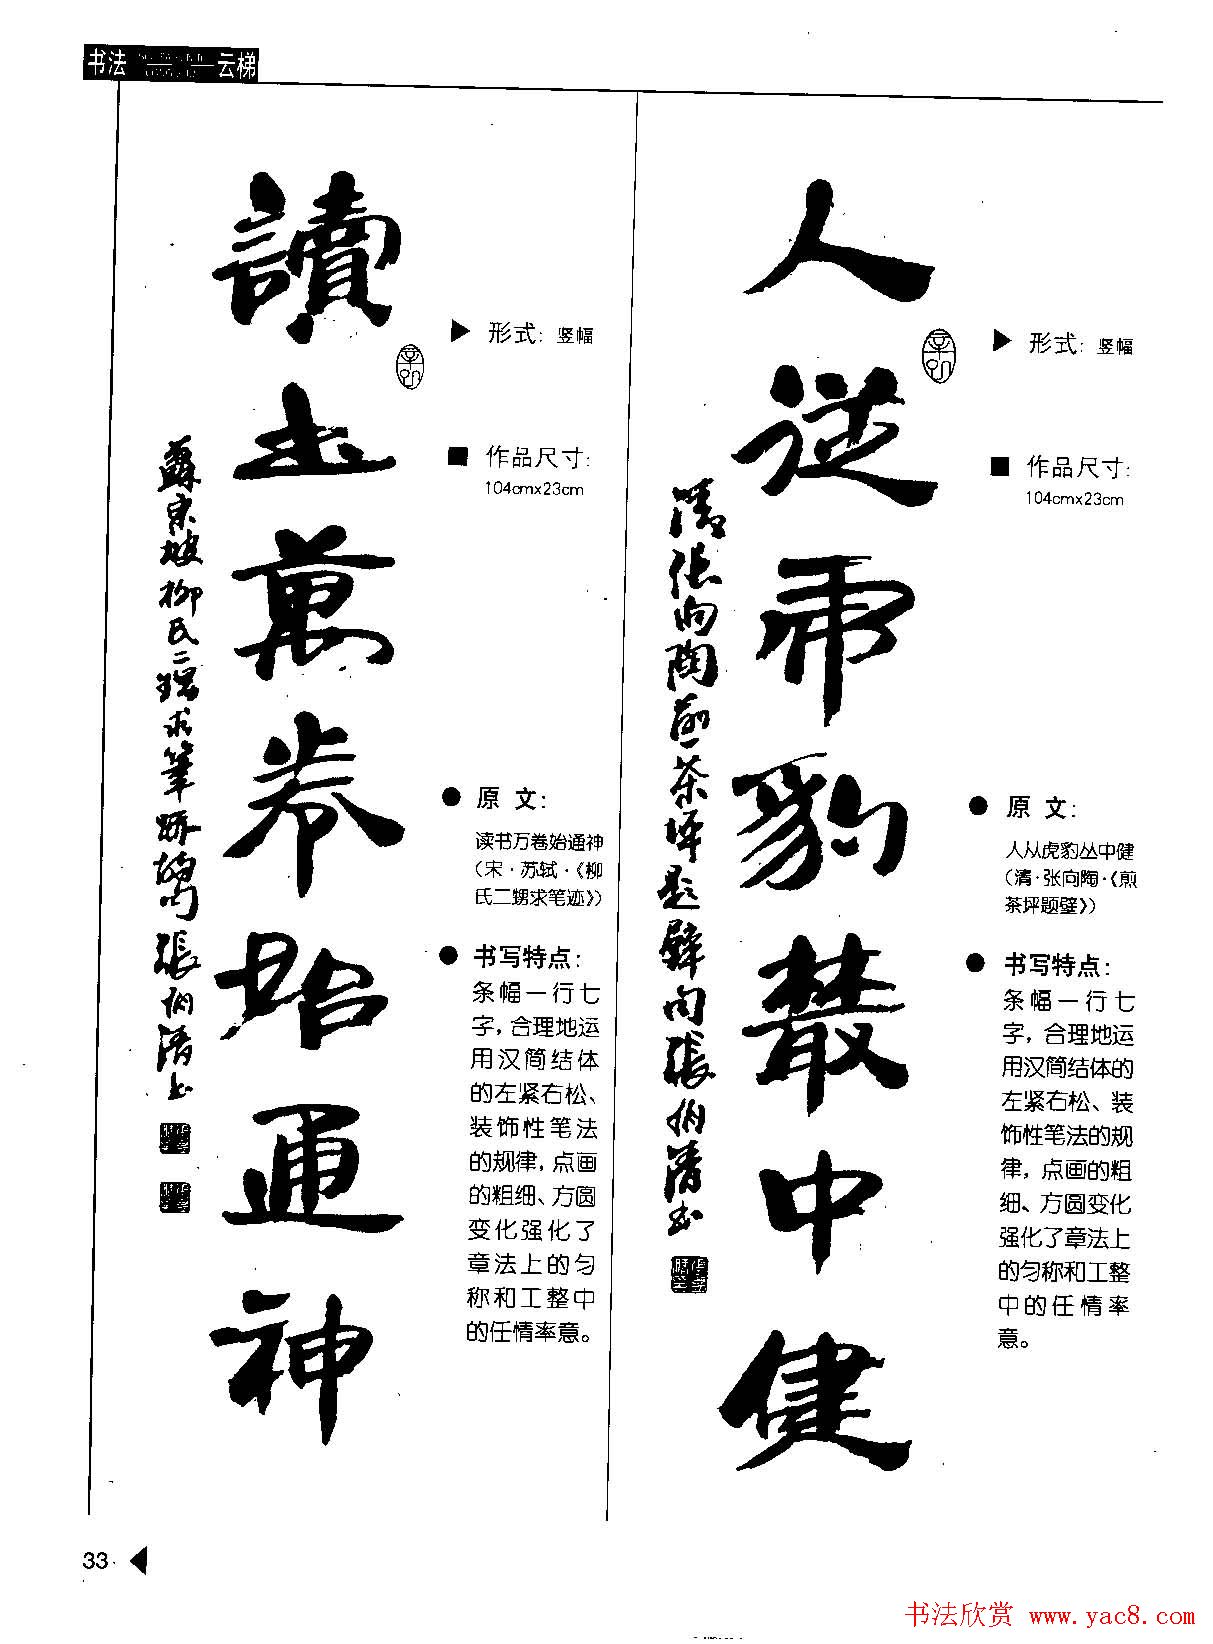 书法 云梯
讀
书
萬
卷
始
通
神
蘇東坡柳氏二甥求筆跡詩句 張伯濤书
▶ 形式: 竖幅
■ 作品尺寸:
104cmx23cm
● 原 文:
读书万卷始通神
(宋·苏轼·《柳
氏二甥求笔迹》)
● 书写特点:
条幅一行七
字,合理地运
用汉简结体
的左紧右松、
装饰性笔法
的规律,点画
的粗细、方圆
变化强化了
章法上的匀
称和工整中
的任情率意。
人
從
虎
豹
叢
中
健
清張向陶煎茶坪題壁句張伯濤书
▶ 形式: 竖幅
■ 作品尺寸:
104cmx23cm
● 原 文:
人从虎豹丛中健
(清·张向陶·《煎
茶坪题壁》)
● 书写特点:
条幅一行七
字,合理地运
用汉简结体的
左紧右松、装
饰性笔法的规
律,点画的粗
细、方圆变化
强化了章法上
的匀称和工整
中的任情率
意。
33
书法欣赏 www.yac8.com